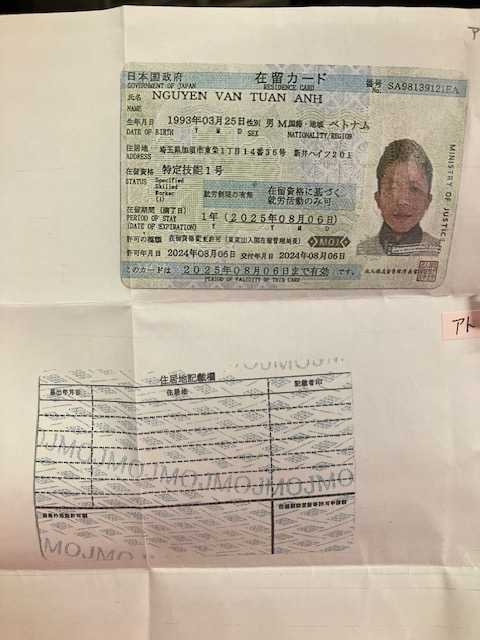 ア
日本国政府 在留カード 番号 SA98139121EA
GOVERNMENT OF JAPAN RESIDENCE CARD No.
氏名 NGUYEN VAN TUAN ANH
NAME
生年月日 1993年03月25日 性別 男 M. 国籍・地域 ベトナム
DATE OF BIRTH Y M D SEX NATIONALITY/REGION
住居地 埼玉県加須市東栄1丁目14番36号 新井ハイツ201
ADDRESS
在留資格 特定技能1号
STATUS Specified
Skilled
Worker
(i)
就労制限の有無 在留資格に基づく
就労活動のみ可
在留期間(満了日) 1年(2025年08月06日)
PERIOD OF STAY Y M D
(DATE OF EXPIRATION)
MOJ
許可の種類 在留資格変更許可(東京出入国在留管理局長)
許可年月日 2024年08月06日 交付年月日 2024年08月06日
このカードは 2025年08月06日まで有効 です。
PERIOD OF VALIDITY OF THIS CARD
MINISTRY OF JUSTICE
アト
住居地記載欄
届出年月日 住居地 記載者印
MOJMOJMOJMOJMO
MOJMOJMO